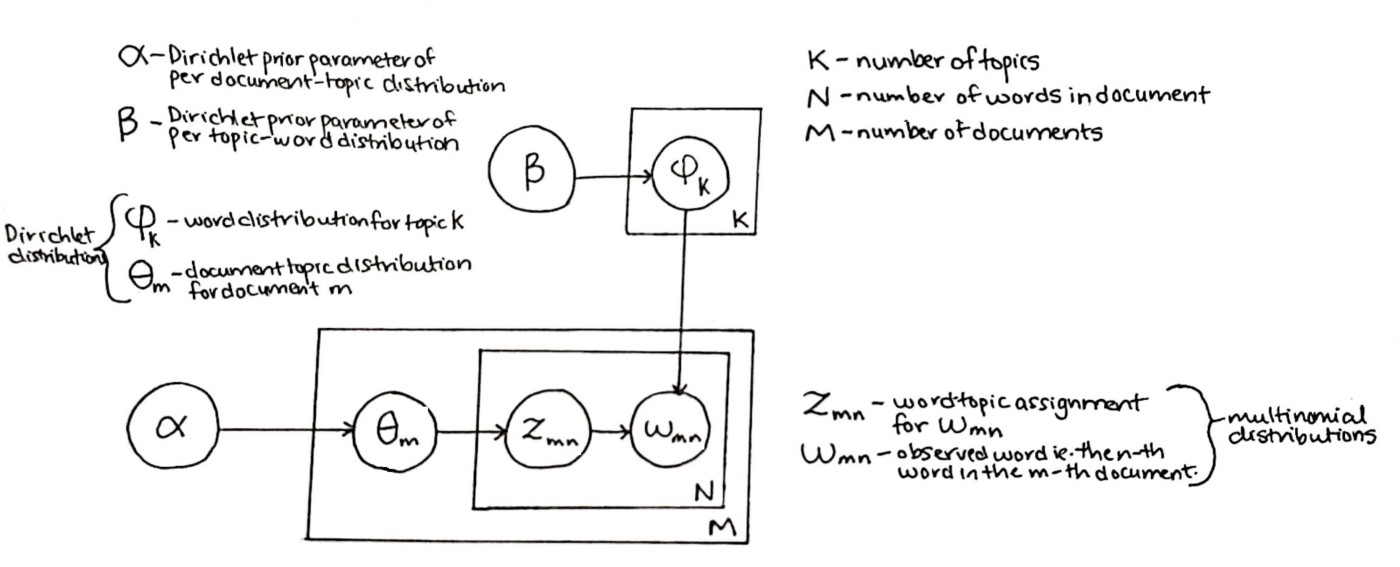 α-Dirichlet prior parameter of
per document-topic distribution
β - Dirichlet prior parameter of
per topic-word distribution
Dirichlet
distributions
φk - word distribution for topic k
θm - document topic distribution
for document m
K - number of topics
N - number of words in document
M - number of documents
β
φk
K
α
θm
Zmn
Wmn
N
M
Zmn - word topic assignment
for Wmn
Wmn - observed word ie. the n-th
word in the m-th document.
multinomial
distributions